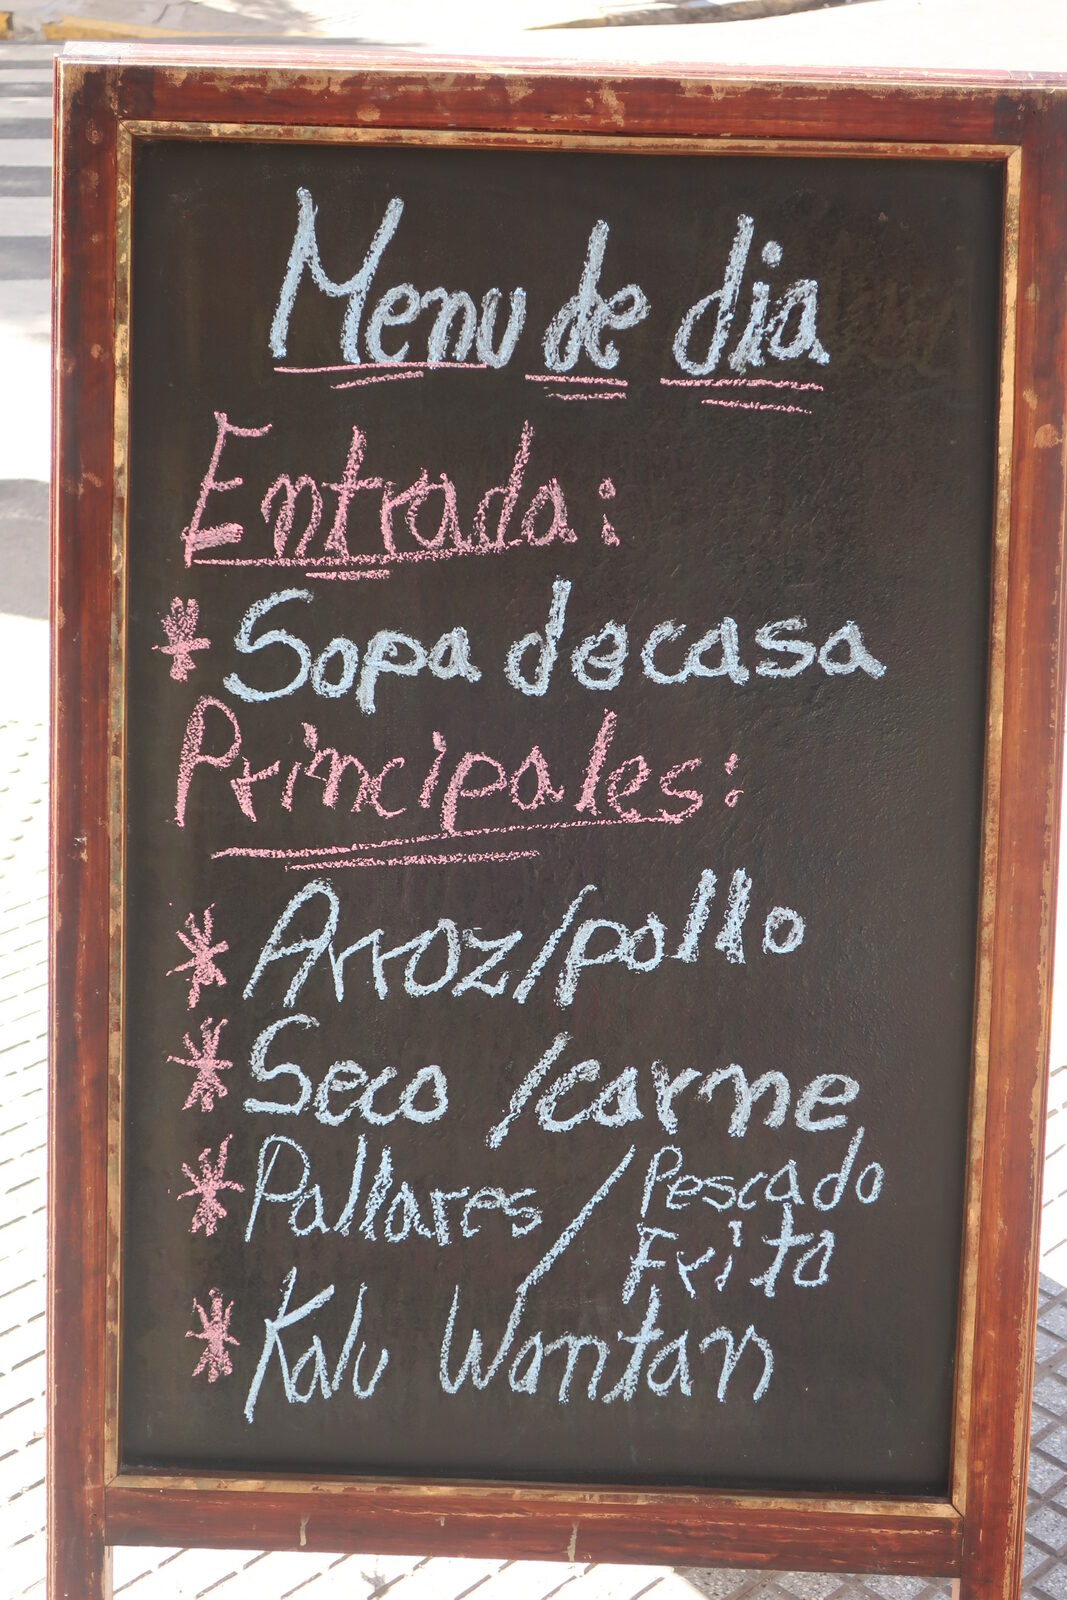 Menu de dia
Entrada:
* Sopa de casa
Principales:
* Arroz/pollo
* Seco /carne
* Pallares / Pescado
Frito
* Kalu Wantan